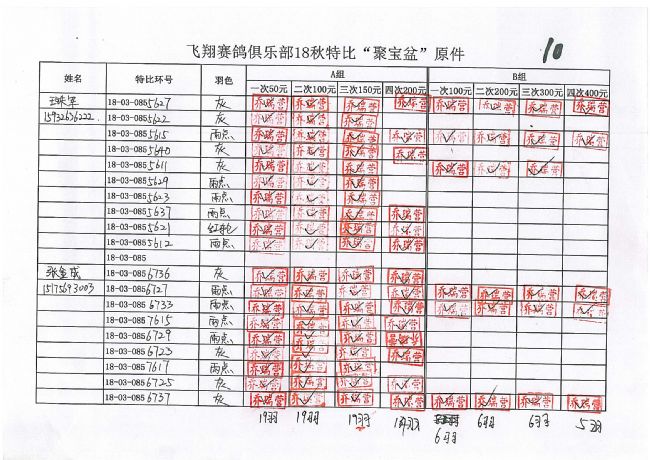 飞翔赛鸽俱乐部18秋特比“聚宝盆”原件 10
姓名 特比环号 羽色 A组 B组
一次50元 二次100元 三次150元 四次200元 一次100元 二次200元 三次300元 四次400元
18-03-0855627 灰 乔瑞营 乔瑞营 乔瑞营 乔瑞营 乔瑞营 乔瑞营 乔瑞营 乔瑞营
15932636222 18-03-0855622 灰 乔瑞营 乔瑞营 乔瑞营
18-03-0855615 雨点 乔瑞营 乔瑞营 乔瑞营 乔瑞营 乔瑞营 乔瑞营 乔瑞营 乔瑞营
18-03-0855640 灰 乔瑞营 乔瑞营 乔瑞营 乔瑞营
18-03-0855611 灰 乔瑞营 乔瑞营 乔瑞营 乔瑞营 乔瑞营 乔瑞营
18-03-0855629 雨点 乔瑞营 乔瑞营 乔瑞营
18-03-0855623 雨点 乔瑞营 乔瑞营 乔瑞营
18-03-0855637 雨点 乔瑞营 乔瑞营 乔瑞营 乔瑞营
18-03-0855621 红轮 乔瑞营 乔瑞营 乔瑞营 乔瑞营
18-03-0855612 雨点 乔瑞营 乔瑞营 乔瑞营 乔瑞营
18-03-085
张金成 18-03-0856736 灰 乔瑞营 乔瑞营 乔瑞营 乔瑞营
15175693003 18-03-0856727 雨点 乔瑞营 乔瑞营 乔瑞营 乔瑞营 乔瑞营 乔瑞营 乔瑞营 乔瑞营
18-03-0856733 雨点 乔瑞营 乔瑞营 乔瑞营 乔瑞营 乔瑞营 乔瑞营 乔瑞营 乔瑞营
18-03-0857615 雨点 乔瑞营 乔瑞营 乔瑞营 乔瑞营
18-03-0856729 雨点 乔瑞营 乔瑞营 乔瑞营
18-03-0856723 灰 乔瑞营 乔瑞营 乔瑞营 乔瑞营
18-03-0857617 雨点 乔瑞营 乔瑞营 乔瑞营
18-03-0856725 灰 乔瑞营 乔瑞营 乔瑞营 乔瑞营
18-03-0856737 灰 乔瑞营 乔瑞营 乔瑞营 乔瑞营 乔瑞营 乔瑞营 乔瑞营 乔瑞营
19羽 19羽 19羽 6羽 6羽 5羽
6羽